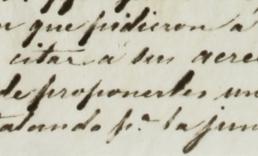 que pidieron á
citar á sus acre
de proponerles un
talando p.ª la jun